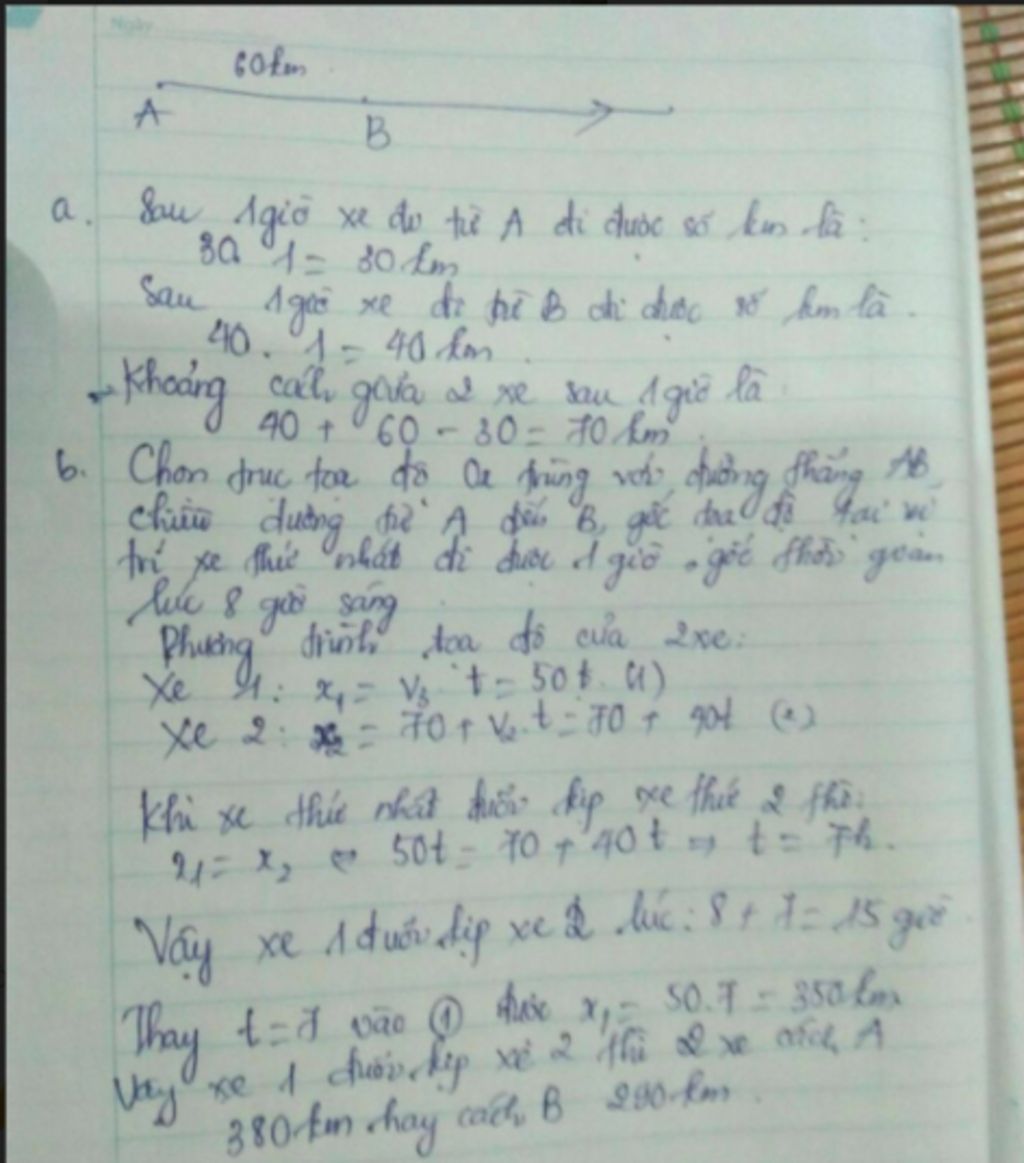 Ngày
60km
A
B
a. Sau 1 giờ xe đo từ A đi được số km là:
30. 1 = 30 km
Sau 1 giờ xe đi từ B đi được số km là.
40. 1 = 40 km.
Khoảng cách giữa 2 xe sau 1 giờ là
40 + 60 - 30 = 70 km.
b. Chọn trục tọa độ Ox trùng với đường thẳng AB,
chiều dương từ A đến B, gốc tọa độ tại vị
trí xe thứ nhất đi được 1 giờ, gốc thời gian
lúc 8 giờ sáng
Phương trình tọa độ của 2 xe:
Xe 1: x₁ = V₃ t = 50t. (1)
Xe 2: x₂ = 70 + V₂.t = 70 + 40t (2)
Khi xe thứ nhất đuổi kịp xe thứ 2 thì:
x₁ = x₂ ⇔ 50t = 70 + 40t ⇒ t = 7h.
Vậy xe 1 đuổi kịp xe 2 lúc: 8 + 7 = 15 giờ
Thay t = 7 vào ① được x₁ = 50.7 = 350 km
Vậy xe 1 đuổi kịp xe 2 thì 2 xe cách A
380 km hay cách B 290 km.